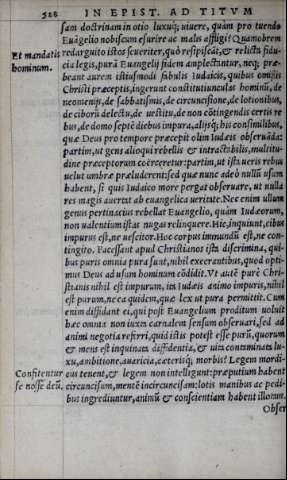 528 IN EPIST. AD TITVM
sam doctrinam in otio luxuq; uiuere, quàm pro tuendo
Euāgelio nobiscum esurire ac malis affligi? Quamobrem
Et mandatis redarguito istos seueriter, quò resipiscāt, & relicta fidu-
hominum. cia legis, purā Euangelij fidem amplectantur, neq; præ-
beant aurem istiusmodi fabulis Iudaicis, quibus omissis
Christi præceptis, ingerunt constitutiunculas hominū, de
neomenijs, de sabbatismis, de circuncisione, de lotionibus,
de ciborū delectu, de uestitu, de non cōtingendis certis re
bus, de domo septē diebus impura, alijsq; his consimilibus,
quæ Deus pro tempore præcepit olim Iudæis obseruāda:
partim, ut gens alioqui rebellis & intractabilis, multitu-
dine præceptorum coërceretur: partim, ut ista ueris rebus
uelut umbræ præluderent: sed quæ nunc adeò nullū usum
habent, si quis Iudaico more pergat obseruare, ut nulla
res magis auertat ab euangelica ueritate. Nec enim ullum
genus pertinacius rebellat Euangelio, quàm Iudæorum,
non ualentium istas nugas relinquere. Hic, inquiunt, cibus
impurus est, ne uescitor. Hoc corpus immundū est, ne con-
tingito. Facessant apud Christianos ista discrimina, qui-
bus puris omnia pura sunt, nihil execrantibus, quod opti-
mus Deus ad usum hominum cōdidit. Vt autē purè Chri-
stianis nihil est impurum, ita Iudæis animo impuris, nihil
est purum, ne ea quidem, quæ lex ut pura permittit. Cum
enim diffidant ei, qui post Euangelium proditum uoluit
hæc omnia non iuxta carnalem sensum obseruari, sed ad
animi negotia referri, quid istis potest esse purū, quorum
& mens est inquinata diffidentia, & uita contaminata lu-
xu, ambitione, auaricia, cæterisq; morbis? Legem mordi-
Confitentur cus tenent, & legem non intelligunt: præputium habent
se nosse deū. circuncisum, mentē incircuncisam: lotis manibus ac pedi-
bus ingrediuntur, animū & conscientiam habent illotam.
Obser